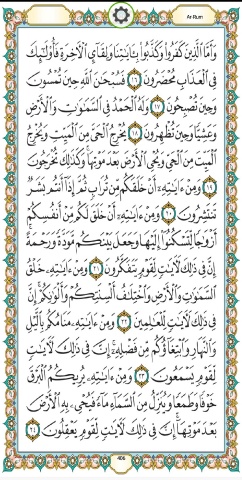 Ar-Rum
وَأَمَّا ٱلَّذِينَ كَفَرُوا۟ وَكَذَّبُوا۟ بِـَٔايَٰتِنَا وَلِقَآئِ ٱلْـَٔاخِرَةِ فَأُو۟لَٰٓئِكَ
فِى ٱلْعَذَابِ مُحْضَرُونَ ١٦ فَسُبْحَٰنَ ٱللَّهِ حِينَ تُمْسُونَ
وَحِينَ تُصْبِحُونَ ١٧ وَلَهُ ٱلْحَمْدُ فِى ٱلسَّمَٰوَٰتِ وَٱلْأَرْضِ
وَعَشِيًّا وَحِينَ تُظْهِرُونَ ١٨ يُخْرِجُ ٱلْحَىَّ مِنَ ٱلْمَيِّتِ وَيُخْرِجُ
ٱلْمَيِّتَ مِنَ ٱلْحَىِّ وَيُحْىِ ٱلْأَرْضَ بَعْدَ مَوْتِهَا ۚ وَكَذَٰلِكَ تُخْرَجُونَ
١٩ وَمِنْ ءَايَٰتِهِۦٓ أَنْ خَلَقَكُم مِّن تُرَابٍ ثُمَّ إِذَآ أَنتُم بَشَرٌ
تَنتَشِرُونَ ٢٠ وَمِنْ ءَايَٰتِهِۦٓ أَنْ خَلَقَ لَكُم مِّنْ أَنفُسِكُمْ
أَزْوَٰجًا لِّتَسْكُنُوٓا۟ إِلَيْهَا وَجَعَلَ بَيْنَكُم مَّوَدَّةً وَرَحْمَةً ۚ
إِنَّ فِى ذَٰلِكَ لَـَٔايَٰتٍ لِّقَوْمٍ يَتَفَكَّرُونَ ٢١ وَمِنْ ءَايَٰتِهِۦ خَلْقُ
ٱلسَّمَٰوَٰتِ وَٱلْأَرْضِ وَٱخْتِلَٰفُ أَلْسِنَتِكُمْ وَأَلْوَٰنِكُمْ ۚ إِنَّ
فِى ذَٰلِكَ لَـَٔايَٰتٍ لِّلْعَٰلِمِينَ ٢٢ وَمِنْ ءَايَٰتِهِۦ مَنَامُكُم بِٱلَّيْلِ
وَٱلنَّهَارِ وَٱبْتِغَآؤُكُم مِّن فَضْلِهِۦٓ ۚ إِنَّ فِى ذَٰلِكَ لَـَٔايَٰتٍ
لِّقَوْمٍ يَسْمَعُونَ ٢٣ وَمِنْ ءَايَٰتِهِۦ يُرِيكُمُ ٱلْبَرْقَ
خَوْفًا وَطَمَعًا وَيُنَزِّلُ مِنَ ٱلسَّمَآءِ مَآءً فَيُحْىِۦ بِهِ ٱلْأَرْضَ
بَعْدَ مَوْتِهَآ ۚ إِنَّ فِى ذَٰلِكَ لَـَٔايَٰتٍ لِّقَوْمٍ يَعْقِلُونَ ٢٤
406